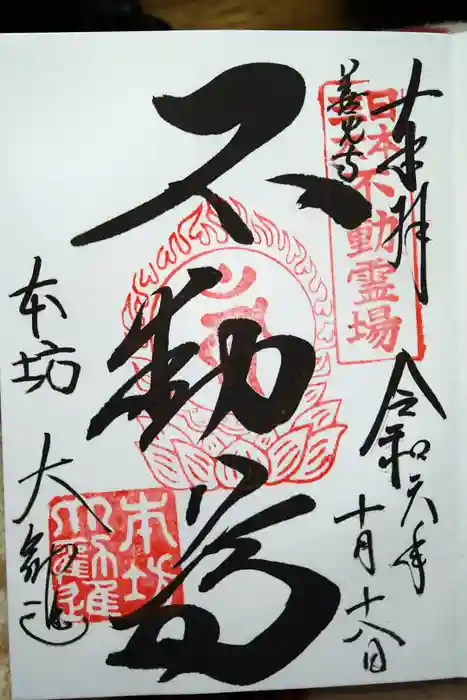 奉拝
日本不動霊場
善光寺
令和六年
十月十八日
不動尊
本坊 大勧進
本坊
大勸進